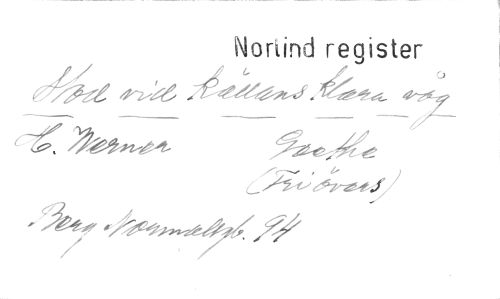 Norlind register
Stod vid källans klara våg
H. Werner Goethe
(Fri övers)
Berg Normalsb. 94